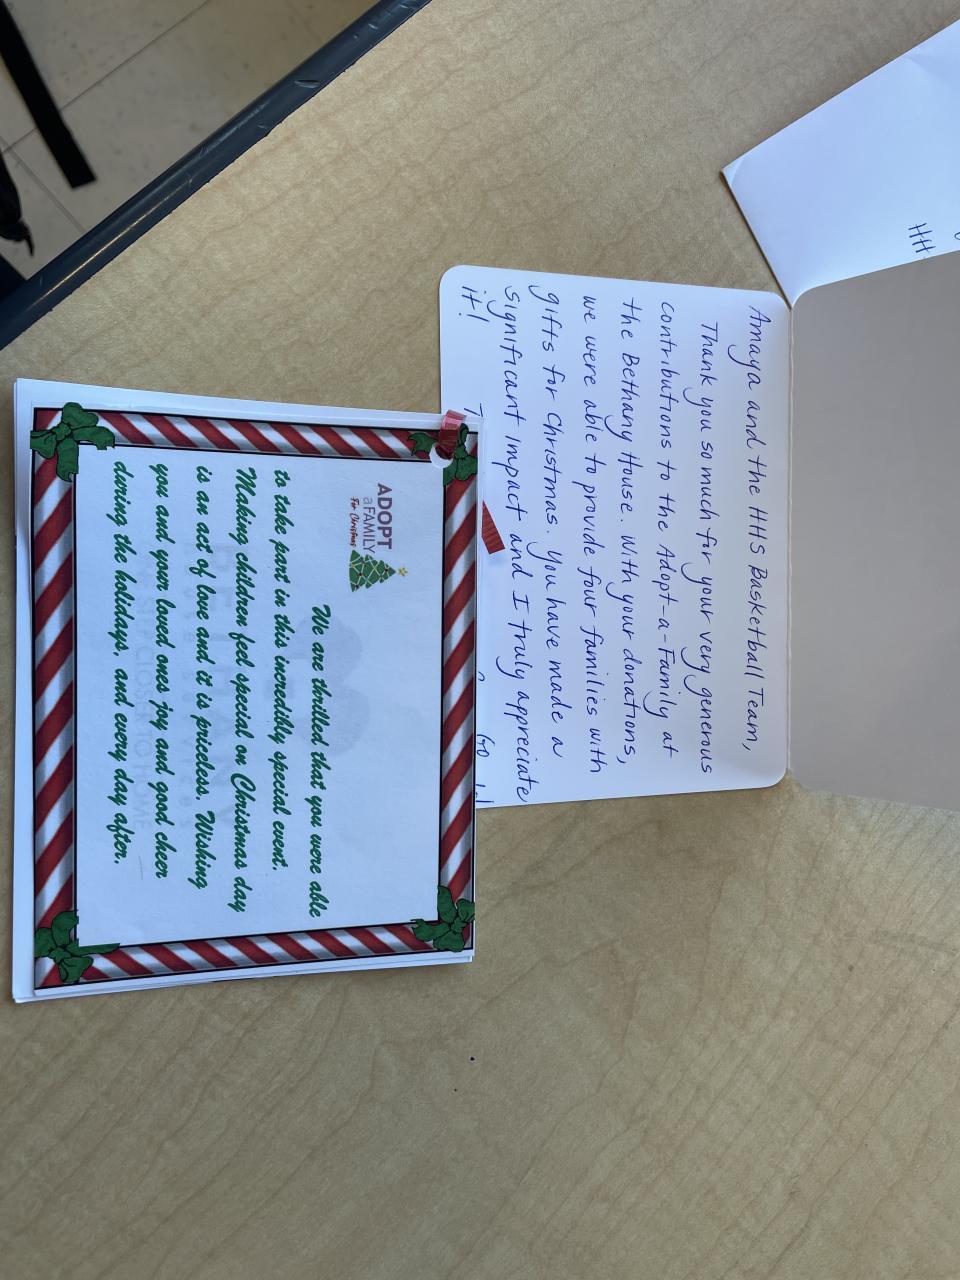 HH
Amaya and the HHS Basketball Team,
Thank you so much for your very generous
contributions to the Adopt-a-Family at
the Bethany House. With your donations,
we were able to provide four families with
gifts for Christmas. You have made a
significant impact and I truly appreciate
it!
Go
ADOPT
aFAMILY
For Christmas
We are thrilled that you were able
to take part in this incredibly special event.
Making children feel special on Christmas day
is an act of love and it is priceless. Wishing
you and your loved ones joy and good cheer
during the holidays, and every day after.